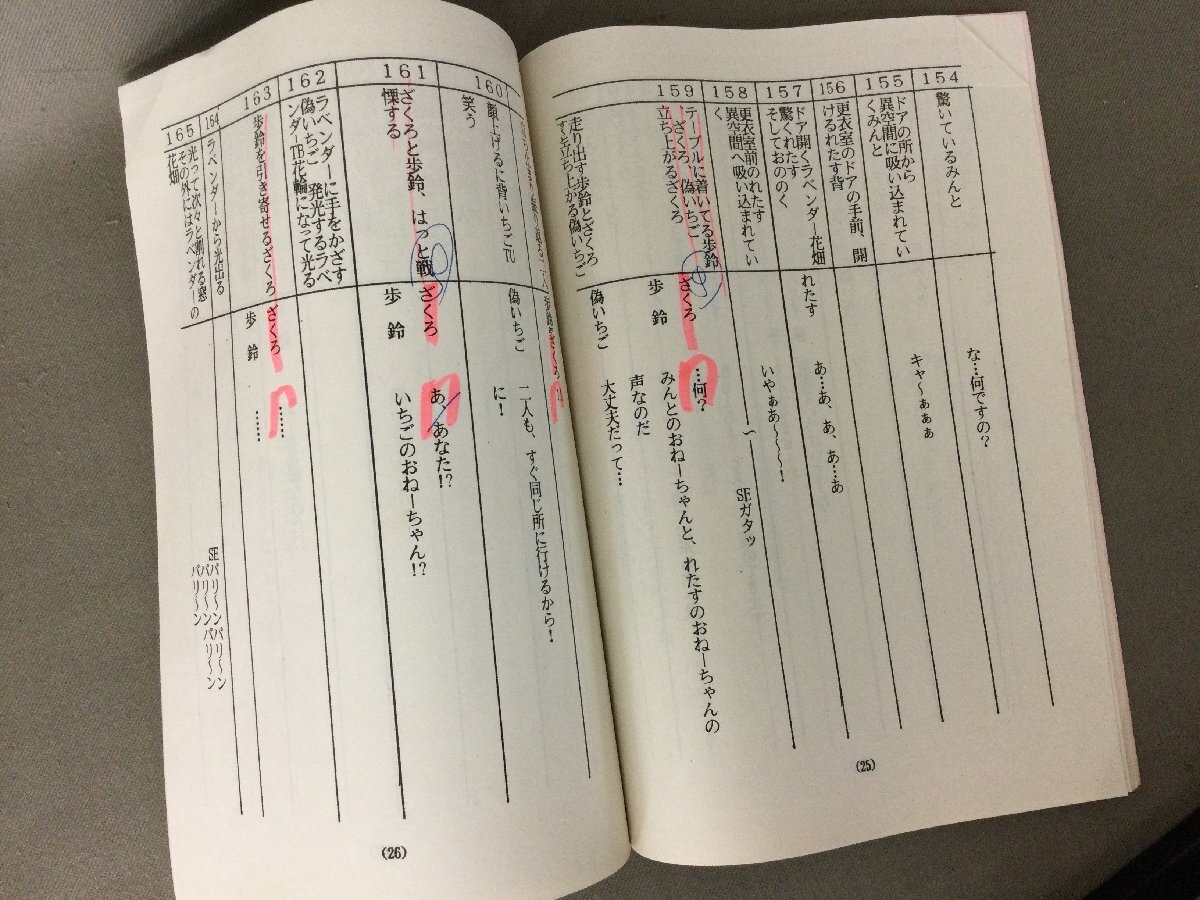 154
驚いているみんと
な…何ですの?
155
ドアの所から
異空間に吸い込まれてい
くみんと
キャ〜ぁぁぁ
156
更衣室のドアの手前、開
けるれたす背
157
ドア開くラベンダー花畑
驚くれたす
そしておののく
れたす
あ…あ、あ、あ…あ
158
更衣室前のれたす
異空間へ吸い込まれてい
く
いやぁあ〜〜〜〜!
SEガタッ
159
テーブルに着いてる歩鈴
ざくろ 偽いちご
立ち上がるざくろ
ざくろ
…何?
歩鈴
みんとのおねーちゃんと、れたすのおねーちゃんの
声なのだ
走り出す歩鈴とざくろ
すぐ立ち上がる偽いちご
偽いちご
大丈夫だって…
(25)
160
顔上げるに背いちごTU
笑う
偽いちご
二人も、すぐ同じ所に行けるから!
に!
161
ざくろと歩鈴、はっと戦
慄する
ざくろ
あ、あなた!?
歩鈴
いちごのおねーちゃん!?
162
ラベンダーに手をかざす
偽いちご 発光するラベ
ンダーTB花輪になって光る
163
歩鈴を引き寄せるざくろ
ざくろ
……
歩鈴
……
164
ラベンダーから光出る
165
光って次々と割れる窓
その外にはラベンダーの
花畑
SEパリ〜ンパリ〜ン
パリ〜ンパリ〜ン
パリ〜ン
(26)